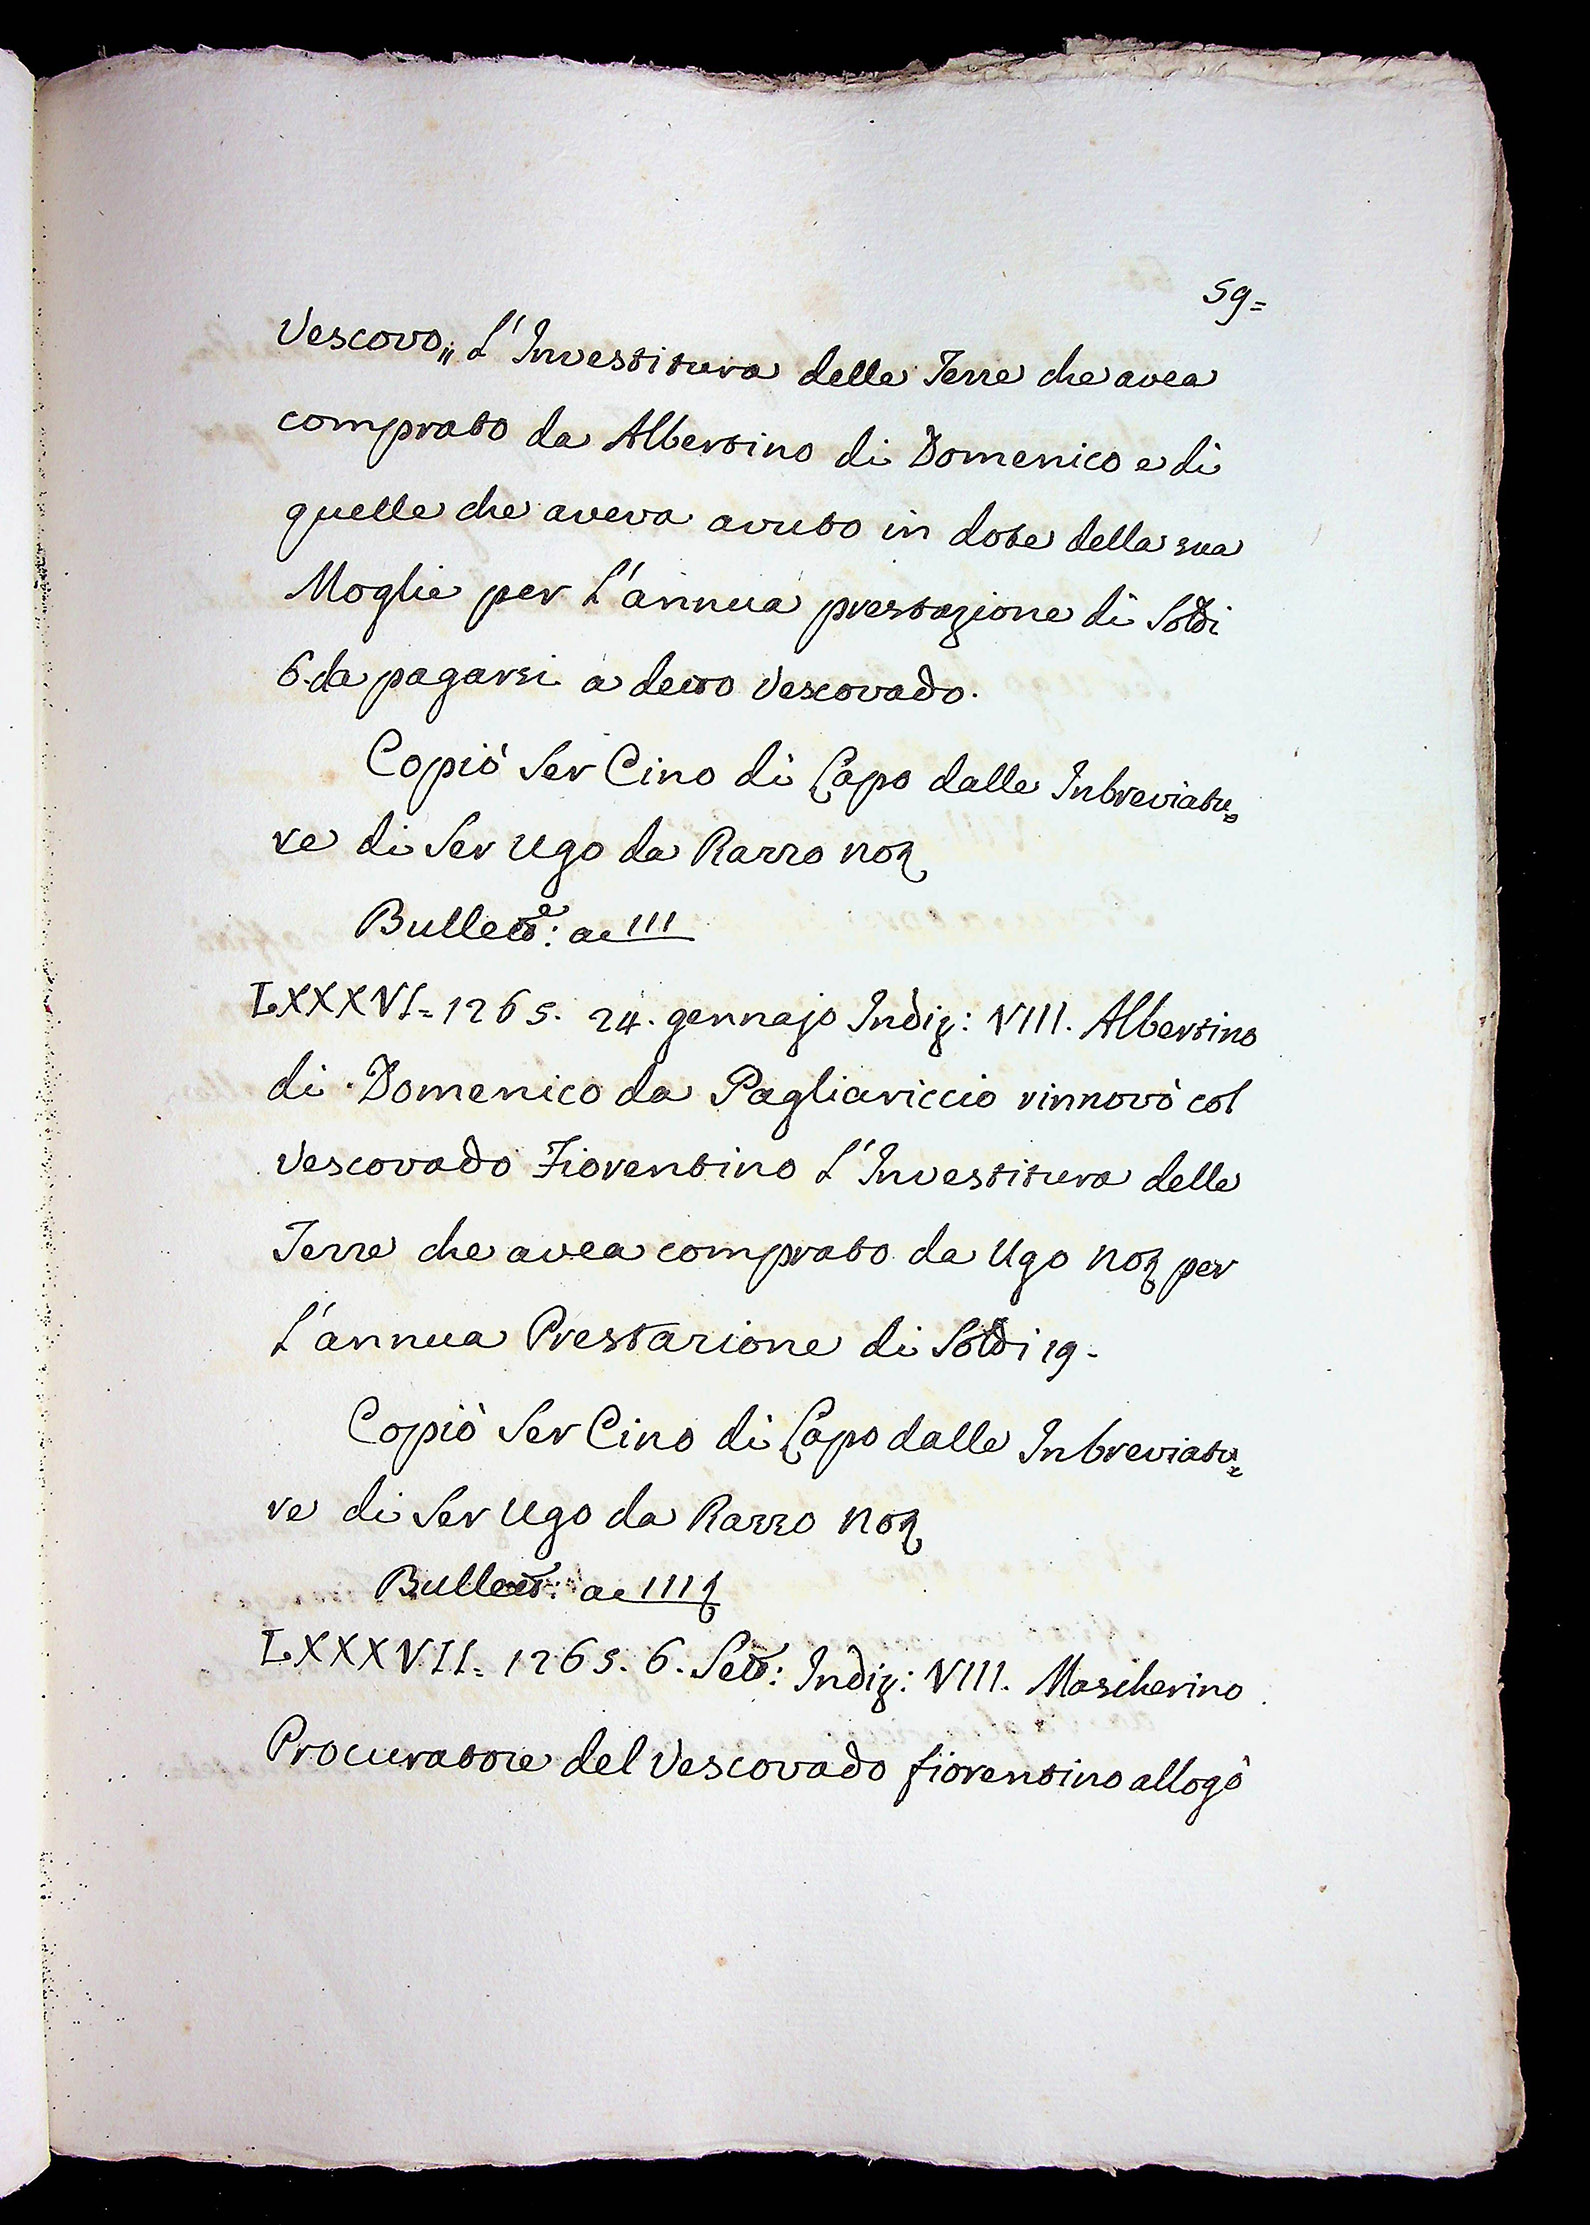 59=
Vescovo„ L'Investitura delle Terre che avea
comprato da Albertino di Domenico e di
quelle che aveva avuto in dote della sua
Moglie per l'annua prestazione di Soldi
6. da pagarsi a detto Vescovado.
Copiò Ser Cino di Lapo dalle Inbreviatu=
re di Ser Ugo da Razzo Not
Bullett: a c 111
LXXXVI= 1265. 24. gennajo Indiz: VIII. Albertino
di Domenico da Pagliariccio rinnovò col
Vescovado Fiorentino L'Investitura delle
Terre che avea comprato da Ugo Not per
L'annua Prestazione di Soldi 19-
Copiò Ser Cino di Lapo dalle Inbreviatu=
re di Ser Ugo da Razzo Not
Bullett: a c 111
LXXXVII= 1265. 6. Sett: Indiz: VIII. Mascherino
Procuratore del Vescovado fiorentino allogò